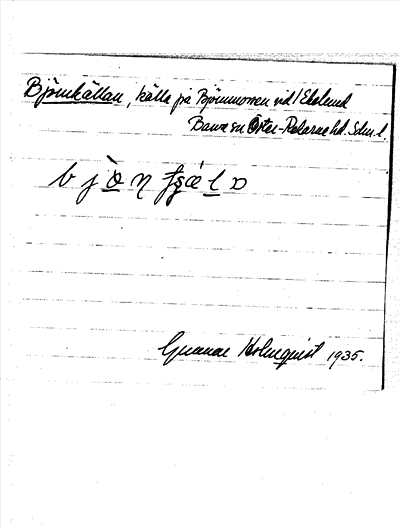 Björnkällan, källa på Björnmossen vid Ekelund
Barva sn Öster-Rekarne hd. Sdm. l.
Gunnar Holmquist 1935.